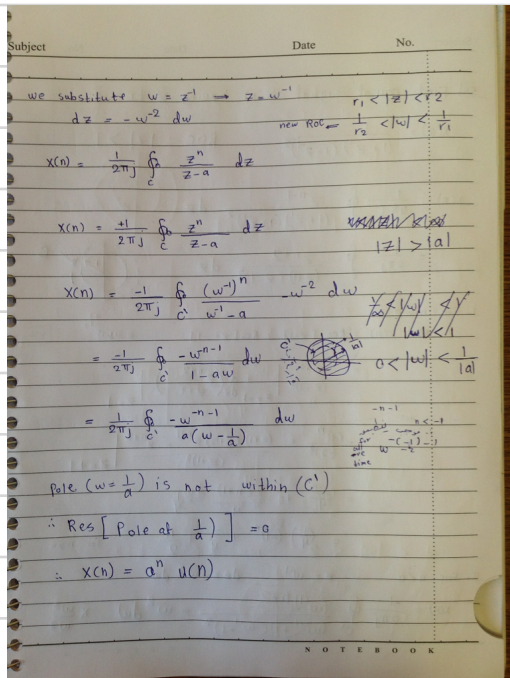 Subject Date No.
we substitute w = z⁻¹ → z = w⁻¹
r₁ < |z| < r2
dz = -w⁻² dw
new ROC = 1/r₂ < |w| < 1/r₁
x(n) = 1/2πj ∮_C zⁿ/z-a dz
x(n) = +1/2πj ∮_C zⁿ/z-a dz
|z| > |a|
x(n) = -1/2πj ∮_C' (w⁻¹)ⁿ/w⁻¹-a -w⁻² dw
= -1/2πj ∮_C' -wⁿ⁻¹/1-aw dw
C' 1/|a|
0 < |w| < 1/|a|
= 1/2πj ∮_C' -w⁻ⁿ⁻¹/a(w-1/a) dw
-n-1
n < -1
w -(-1)-1
-2
time
Pole (w = 1/a) is not within (C')
∴ Res [Pole at 1/a)] = 0
∴ x(n) = aⁿ u(n)
NOTEBOOK